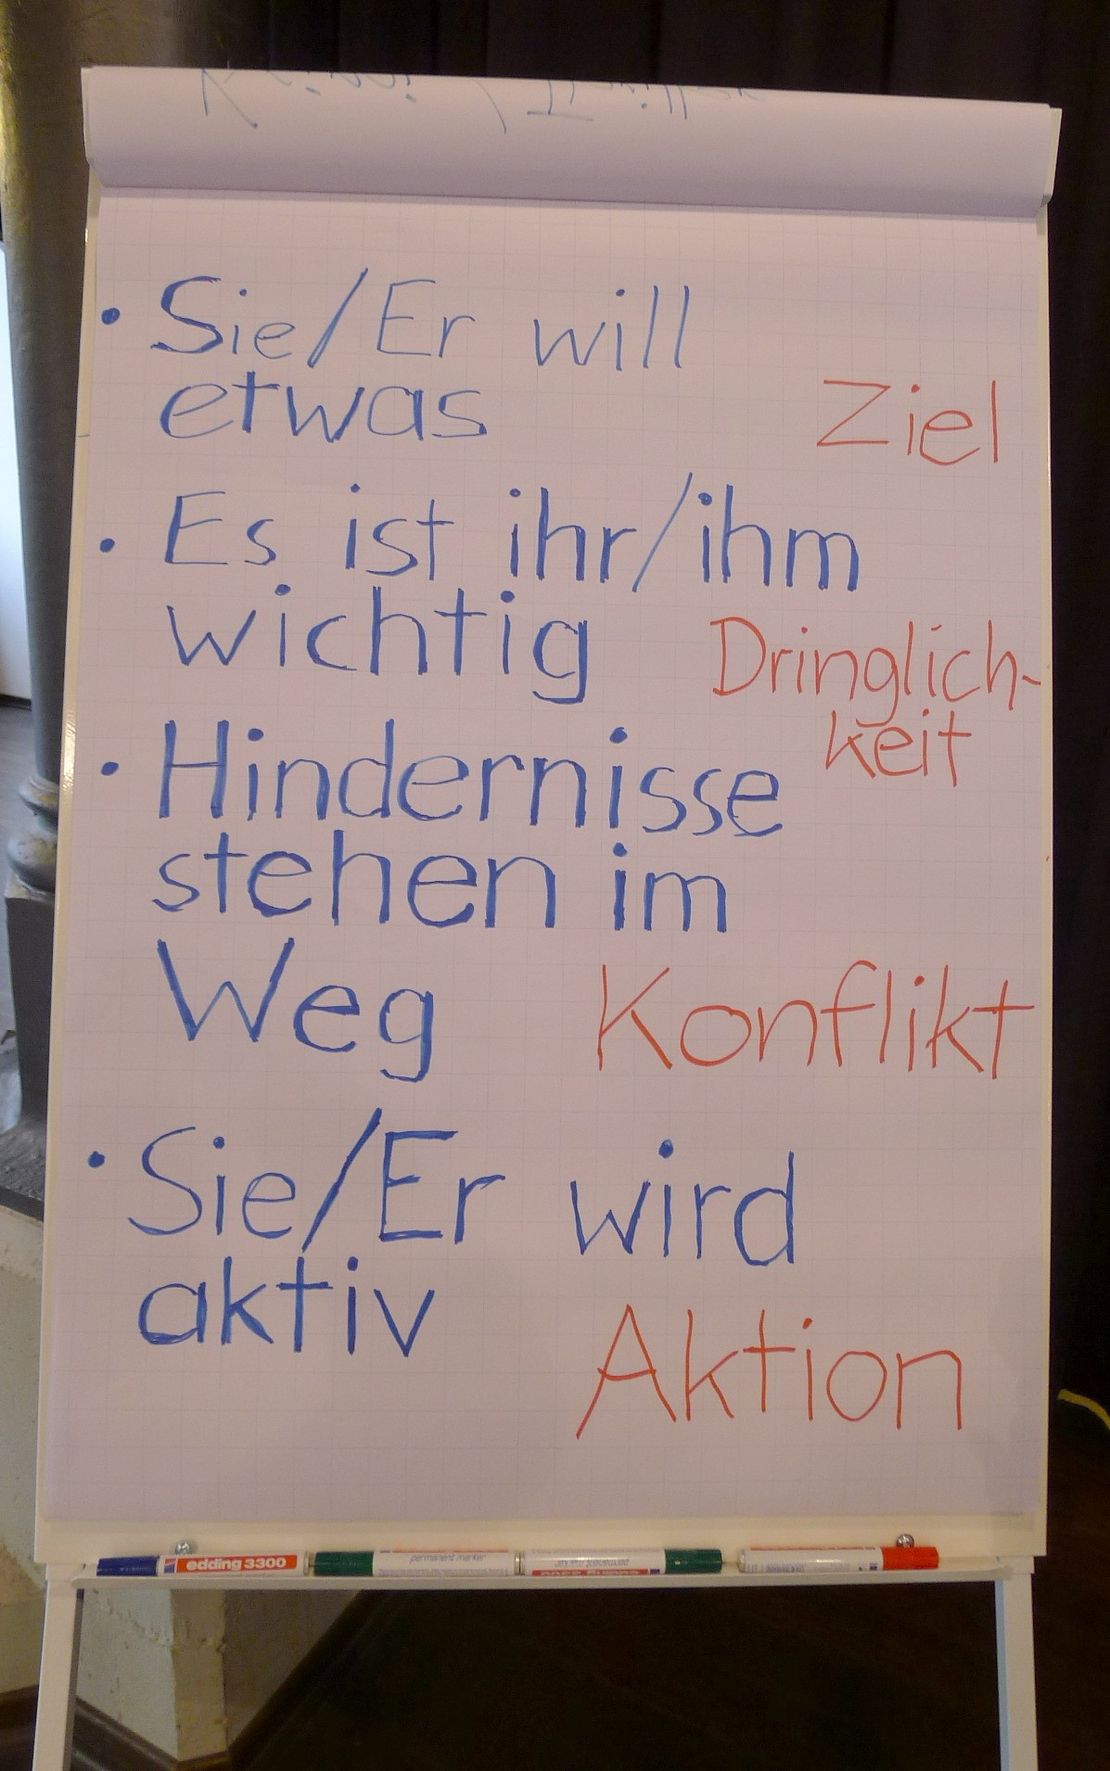 • Sie/Er will
etwas
Ziel
• Es ist ihr/ihm
wichtig
Dringlich-
keit
• Hindernisse
stehen im
Weg
Konflikt
• Sie/Er wird
aktiv
Aktion
edding 3300
permanent marker